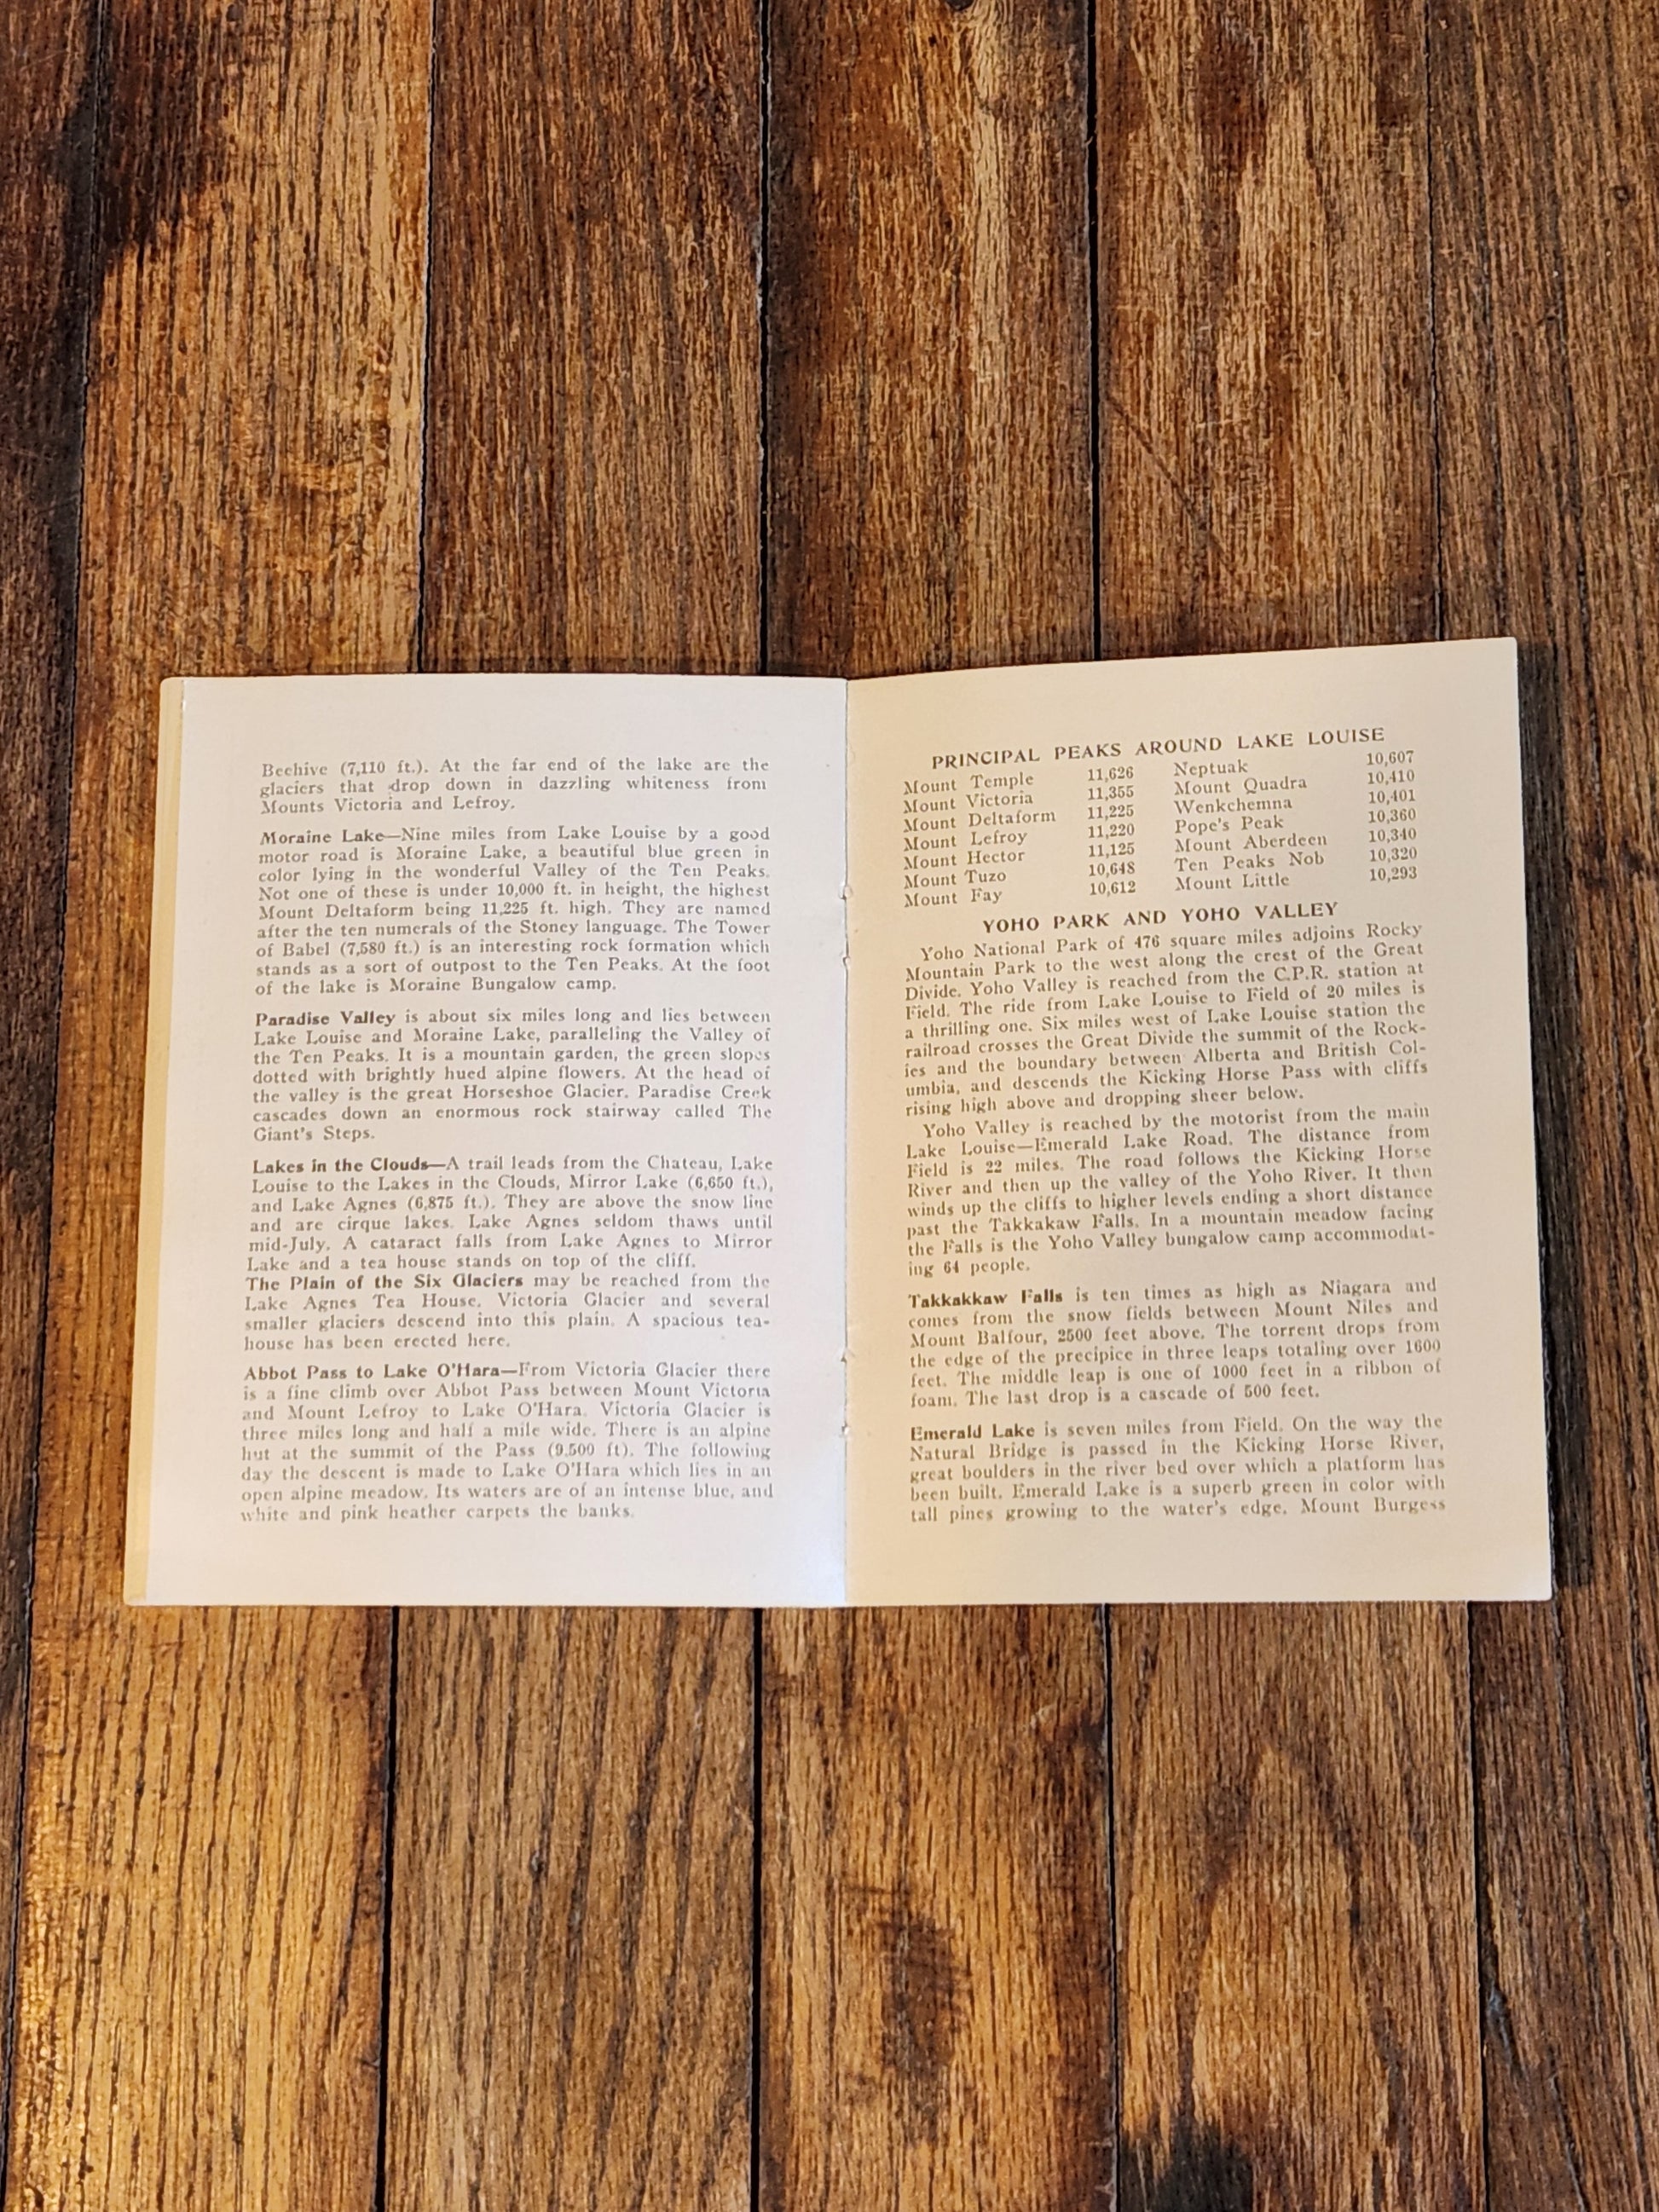 Beehive (7,110 ft.). At the far end of the lake are the
glaciers that drop down in dazzling whiteness from
Mounts Victoria and Lefroy.
Moraine Lake—Nine miles from Lake Louise by a good
motor road is Moraine Lake, a beautiful blue green in
color lying in the wonderful Valley of the Ten Peaks.
Not one of these is under 10,000 ft. in height, the highest
Mount Deltaform being 11,225 ft. high. They are named
after the ten numerals of the Stoney language. The Tower
of Babel (7,580 ft.) is an interesting rock formation which
stands as a sort of outpost to the Ten Peaks. At the foot
of the lake is Moraine Bungalow camp.
Paradise Valley is about six miles long and lies between
Lake Louise and Moraine Lake, paralleling the Valley of
the Ten Peaks. It is a mountain garden, the green slopes
dotted with brightly hued alpine flowers. At the head of
the valley is the great Horseshoe Glacier. Paradise Creek
cascades down an enormous rock stairway called The
Giant's Steps.
Lakes in the Clouds—A trail leads from the Chateau, Lake
Louise to the Lakes in the Clouds, Mirror Lake (6,650 ft.),
and Lake Agnes (6,875 ft.). They are above the snow line
and are cirque lakes. Lake Agnes seldom thaws until
mid-July. A cataract falls from Lake Agnes to Mirror
Lake and a tea house stands on top of the cliff.
The Plain of the Six Glaciers may be reached from the
Lake Agnes Tea House. Victoria Glacier and several
smaller glaciers descend into this plain. A spacious tea-
house has been erected here.
Abbot Pass to Lake O'Hara—From Victoria Glacier there
is a fine climb over Abbot Pass between Mount Victoria
and Mount Lefroy to Lake O'Hara. Victoria Glacier is
three miles long and half a mile wide. There is an alpine
hut at the summit of the Pass (9,500 ft). The following
day the descent is made to Lake O'Hara which lies in an
open alpine meadow. Its waters are of an intense blue, and
white and pink heather carpets the banks.
PRINCIPAL PEAKS AROUND LAKE LOUISE
Mount Temple 11,626 Neptuak 10,607
Mount Victoria 11,355 Mount Quadra 10,410
Mount Deltaform 11,225 Wenkchemna 10,401
Mount Lefroy 11,220 Pope's Peak 10,360
Mount Hector 11,125 Mount Aberdeen 10,340
Mount Tuzo 10,648 Ten Peaks Nob 10,320
Mount Fay 10,612 Mount Little 10,293
YOHO PARK AND YOHO VALLEY
Yoho National Park of 476 square miles adjoins Rocky
Mountain Park to the west along the crest of the Great
Divide. Yoho Valley is reached from the C.P.R. station at
Field. The ride from Lake Louise to Field of 20 miles is
a thrilling one. Six miles west of Lake Louise station the
railroad crosses the Great Divide the summit of the Rock-
ies and the boundary between Alberta and British Col-
umbia, and descends the Kicking Horse Pass with cliffs
rising high above and dropping sheer below.
Yoho Valley is reached by the motorist from the main
Lake Louise—Emerald Lake Road. The distance from
Field is 22 miles. The road follows the Kicking Horse
River and then up the valley of the Yoho River. It then
winds up the cliffs to higher levels ending a short distance
past the Takkakaw Falls. In a mountain meadow facing
the Falls is the Yoho Valley bungalow camp accommodat-
ing 64 people.
Takkakkaw Falls is ten times as high as Niagara and
comes from the snow fields between Mount Niles and
Mount Balfour, 2500 feet above. The torrent drops from
the edge of the precipice in three leaps totaling over 1600
feet. The middle leap is one of 1000 feet in a ribbon of
foam. The last drop is a cascade of 500 feet.
Emerald Lake is seven miles from Field. On the way the
Natural Bridge is passed in the Kicking Horse River,
great boulders in the river bed over which a platform has
been built. Emerald Lake is a superb green in color with
tall pines growing to the water's edge. Mount Burgess